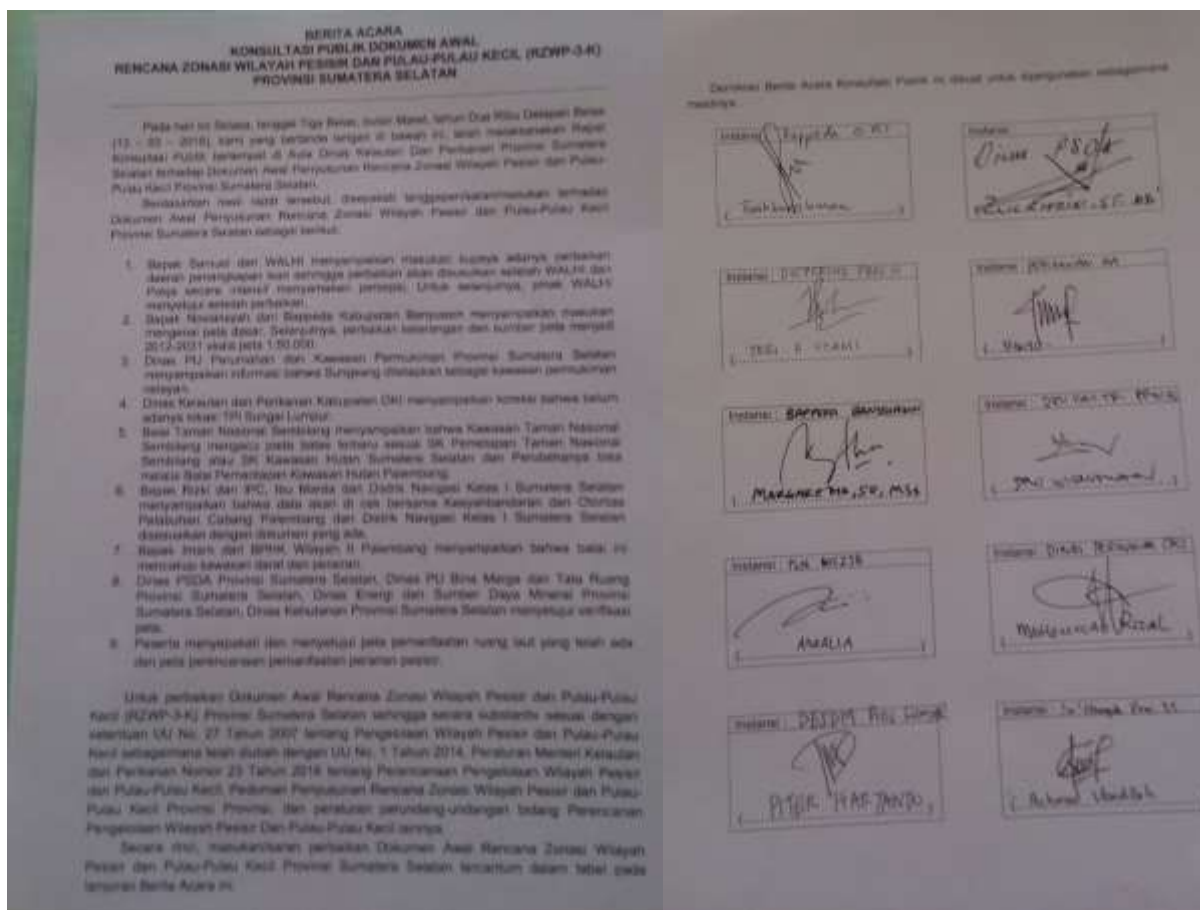 BERITA ACARA
KONSULTASI PUBLIK DOKUMEN AWAL
RENCANA ZONASI WILAYAH PESISIR DAN PULAU-PULAU KECIL (RZWP-3-K)
PROVINSI SUMATERA SELATAN
Pada hari ini Selasa, tanggal Tiga Belas, bulan Maret, tahun Dua Ribu Delapan Belas
(13 - 03 - 2018), kami yang bertanda tangan di bawah ini, telah melaksanakan Rapat
Konsultasi Publik bertempat di Aula Dinas Kelautan Dan Perikanan Provinsi Sumatera
Selatan terhadap Dokumen Awal Penyusunan Rencana Zonasi Wilayah Pesisir dan Pulau-
Pulau Kecil Provinsi Sumatera Selatan.
Berdasarkan hasil rapat tersebut, disepakati tanggapan/saran/masukan terhadap
Dokumen Awal Penyusunan Rencana Zonasi Wilayah Pesisir dan Pulau-Pulau Kecil
Provinsi Sumatera Selatan sebagai berikut:
1. Bapak Samuel dari WALHI menyampaikan masukan supaya adanya perbaikan
daerah penangkapan ikan sehingga perbaikan akan diusulkan setelah WALHI dan
Pokja secara intensif menyamakan persepsi. Untuk selanjutnya, pihak WALHI
menyetujui setelah perbaikan.
2. Bapak dari Bappeda Kabupaten Banyuasin menyampaikan masukan
mengenai peta dasar. Selanjutnya, perbaikan keterangan dan sumber peta menjadi
2012-2031 skala peta 1:50.000.
3. Dinas PU Perumahan dan Kawasan Permukiman Provinsi Sumatera Selatan
menyampaikan informasi bahwa Sungsang ditetapkan sebagai kawasan permukiman
nelayan.
4. Dinas Kelautan dan Perikanan Kabupaten OKI menyampaikan koreksi bahwa belum
adanya lokasi TPI Sungai Lumpur.
5. Balai Taman Nasional Sembilang menyampaikan bahwa Kawasan Taman Nasional
Sembilang mengacu pada batas terbaru sesuai SK Penetapan Taman Nasional
Sembilang atau SK Kawasan Hutan Sumatera Selatan dan Perubahannya bisa
melalui Balai Pemantapan Kawasan Hutan Palembang.
6. Bapak Rizki dari IPC, Ibu Marda dari Distrik Navigasi Kelas I Sumatera Selatan
menyampaikan bahwa data akan di cek bersama Kesyahbandaran dan Otoritas
Pelabuhan Cabang Palembang dan Distrik Navigasi Kelas I Sumatera Selatan
disesuaikan dengan dokumen yang ada.
7. Bapak Imam dari BPHK Wilayah II Palembang menyampaikan bahwa balai ini
mencakup kawasan darat dan perairan.
8. Dinas PSDA Provinsi Sumatera Selatan, Dinas PU Bina Marga dan Tata Ruang
Provinsi Sumatera Selatan, Dinas Energi dan Sumber Daya Mineral Provinsi
Sumatera Selatan, Dinas Kehutanan Provinsi Sumatera Selatan menyetujui verifikasi
peta.
9. Peserta menyepakati dan menyetujui peta pemanfaatan ruang laut yang telah ada
dan peta perencanaan pemanfaatan perairan pesisir.
Untuk perbaikan Dokumen Awal Rencana Zonasi Wilayah Pesisir dan Pulau-Pulau
Kecil (RZWP-3-K) Provinsi Sumatera Selatan sehingga secara substantiv sesuai dengan
ketentuan UU No. 27 Tahun 2007 tentang Pengelolaan Wilayah Pesisir dan Pulau-Pulau
Kecil sebagaimana telah diubah dengan UU No. 1 Tahun 2014, Peraturan Menteri Kelautan
dan Perikanan Nomor 23 Tahun 2016 tentang Perencanaan Pengelolaan Wilayah Pesisir
dan Pulau-Pulau Kecil, Pedoman Penyusunan Rencana Zonasi Wilayah Pesisir dan Pulau-
Pulau Kecil Provinsi Provinsi, dan peraturan perundang-undangan bidang Perencanaan
Pengelolaan Wilayah Pesisir Dan Pulau-Pulau Kecil lainnya.
Secara rinci, masukan/saran perbaikan Dokumen Awal Rencana Zonasi Wilayah
Pesisir dan Pulau-Pulau Kecil Provinsi Sumatera Selatan tercantum dalam tabel pada
lampiran Berita Acara ini.
Demikian Berita Acara Konsultasi Publik ini dibuat untuk dipergunakan sebagaimana
mestinya.
Instansi: Bappeda OKI
Instansi:
Dinas PSDA
Instansi:
Instansi:
Instansi: BAPPEDA BANYUASIN
MARGARETHA, SE, MSi
Instansi:
Instansi:
AMALIA
Instansi: DINAS PERIKANAN OKI
RIZAL
Instansi: DESDM
PITER HARTANTO
Instansi:
Achmad